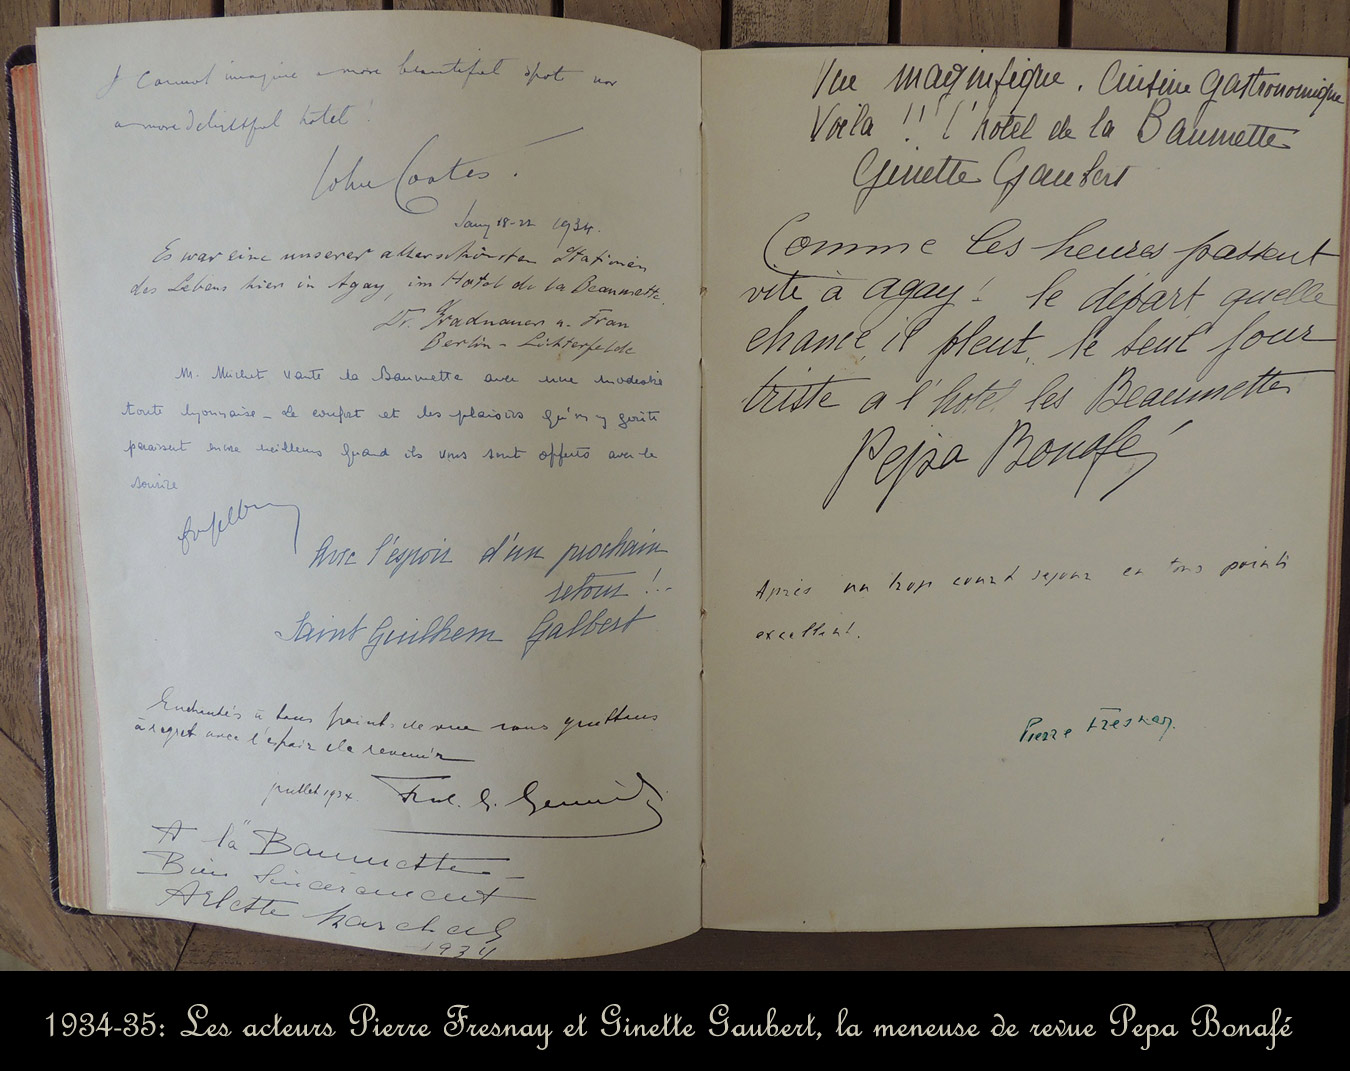 I cannot imagine a more beautiful spot nor
a more delightful hotel!
John Coates.
Jany 18-22 1934.
Es war eine unserer allerschönsten Stationen
des Lebens hier in Agay, im Hotel de la Beaumette.
Dr. Gradnauer u. Frau
Berlin - Lichterfelde
M. Michet vante la Baumette avec une modestie
toute lyonnaise - Le confort et les plaisirs qu'on y goûte
paraissent encore meilleurs quand ils vous sont offerts avec le
sourire
Avec l'espoir d'un prochain
retour !..
Saint Guilhem Galbert
Enchantés à tous points de vue nous quittons
à regret avec l'espoir de revenir
juillet 1934
A "la Baumette -
Bien sincèrement
Arlette Marchal
1934
Vue magnifique. Cuisine gastronomique
Voila !! l'hôtel de la Baumette
Ginette Gaubert
Comme les heures passent
vite à agay! le départ quelle
chance il pleut, le seul jour
triste a l'hotel les Beaumettes
Pepa Bonafé
Après un trop court sejour en tous points
excellent.
Pierre Fresnay.
1934-35: Les acteurs Pierre Fresnay et Ginette Gaubert, la meneuse de revue Pepa Bonafé